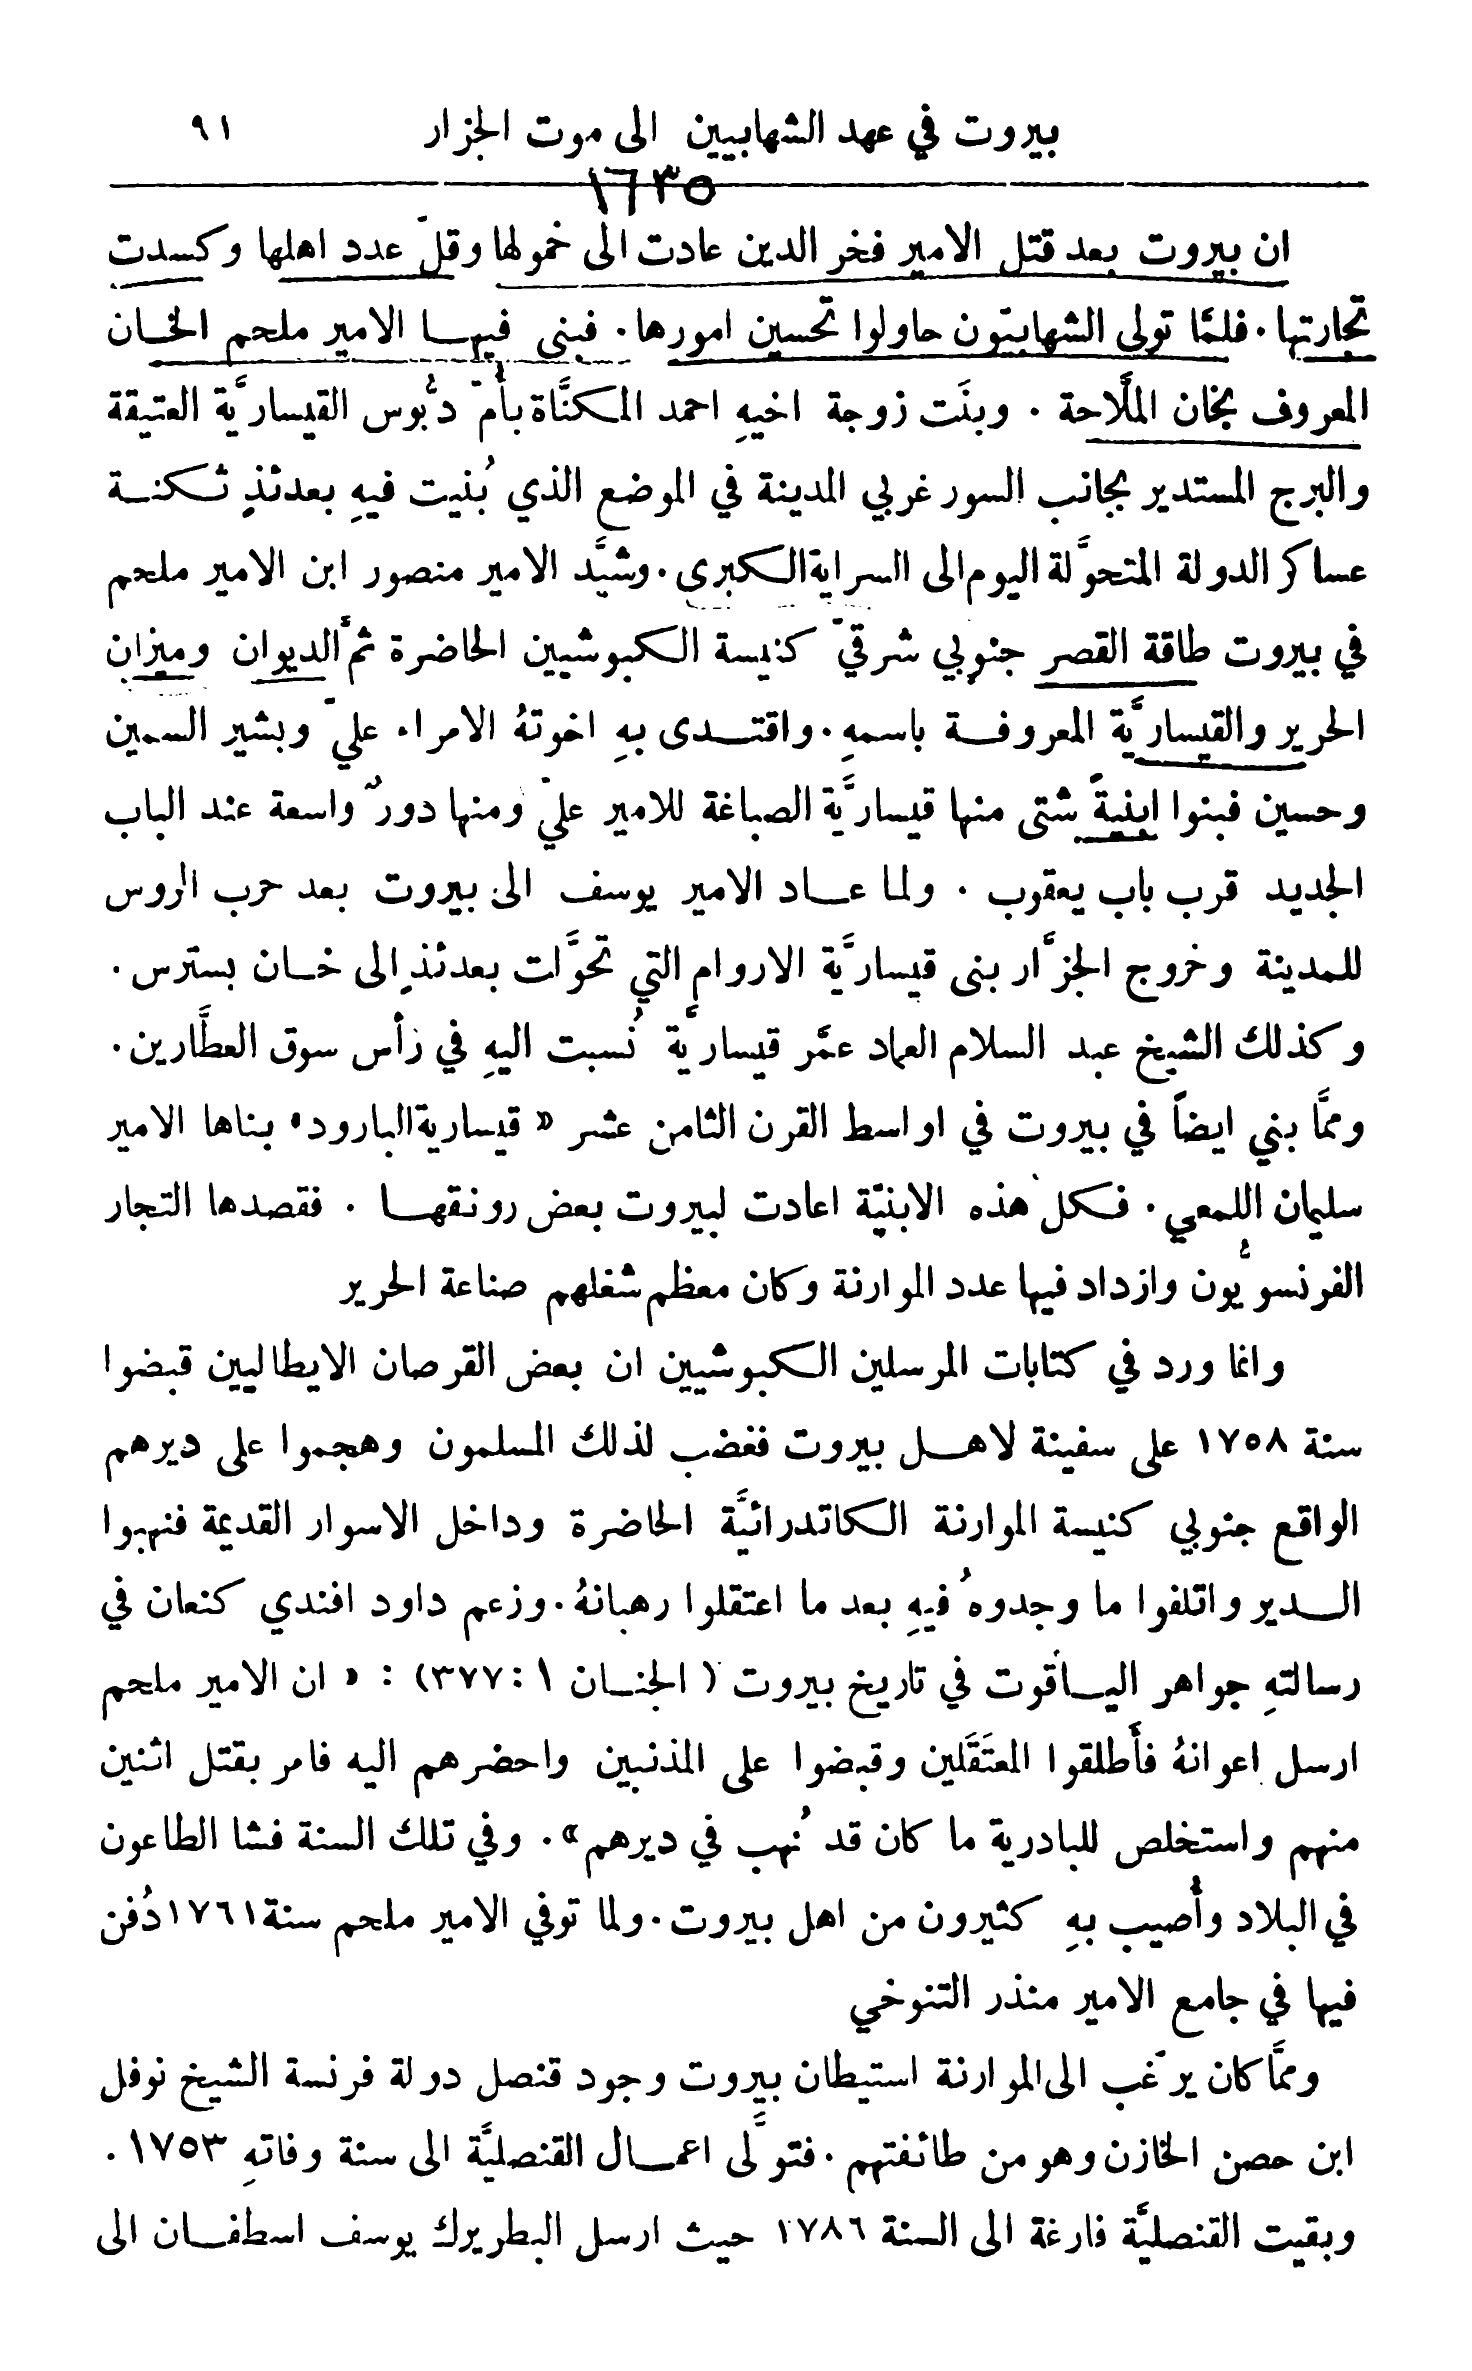 بيروت في عهد الشهابيين الى موت الجزار ٩١
١٦٣٥
ان بيروت بعد قتل الامير فخر الدين عادت الى خمولها وقلّ عدد اهلها وكسدت
تجارتها. فلمَّا تولى الشهابيّون حاولوا تحسين امورها. فبنى فيها الامير ملحم الخان
المعروف بخان الملَّاحة. وبنَت زوجة اخيهِ احمد المكنَّاة بأُمّ دبُّوس القيساريَّة العتيقة
والبرج المستدير بجانب السور غربي المدينة في الموضع الذي بُنيت فيهِ بعدئذٍ ثكنة
عساكر الدولة المتحوَّلة اليوم الى السراية الكبرى. وشيَّد الامير منصور ابن الامير ملحم
في بيروت طاقة القصر جنوبي شرقيّ كنيسة الكبوشيين الحاضرة ثمَّ الديوان وميزان
الحرير والقيساريَّة المعروفة باسمهِ. واقتدى بهِ اخوتهُ الامراء عليّ وبشير السمين
وحسين فبنوا ابنيةً شتى منها قيساريَّة الصباغة للامير عليّ ومنها دورٌ واسعة عند الباب
الجديد قرب باب يعقوب. ولما عاد الامير يوسف الى بيروت بعد حرب الروس
للمدينة وخروج الجزَّار بنى قيساريَّة الاروام التي تحوَّلت بعدئذٍ الى خان بسترس.
وكذلك الشيخ عبد السلام العماد عمَّر قيساريَّة نُسبت اليهِ في رأس سوق العطَّارين.
وممَّا بني ايضاً في بيروت في اواسط القرن الثامن عشر «قيسارية البارود» بناها الامير
سليمان اللمعي. فكل هذه الابنيّة اعادت لبيروت بعض رونقها. فقصدها التجار
الفرنسويُّون وازداد فيها عدد الموارنة وكان معظم شغلهم صناعة الحرير
وانما ورد في كتابات المرسلين الكبوشيين ان بعض القرصان الايطاليين قبضوا
سنة ١٧٥٨ على سفينة لاهل بيروت فغضب لذلك المسلمون وهجموا على ديرهم
الواقع جنوبي كنيسة الموارنة الكاتدرائيَّة الحاضرة وداخل الاسوار القديمة فنهبوا
الدير واتلفوا ما وجدوهُ فيهِ بعد ما اعتقلوا رهبانهُ. وزعم داود افندي كنعان في
رسالتهِ جواهر الياقوت في تاريخ بيروت (الجنان ١: ٣٧٧): «ان الامير ملحم
ارسل اعوانهُ فأَطلقوا المعتَقَلين وقبضوا على المذنبين واحضرهم اليه فامر بقتل اثنين
منهم واستخلص للبادرية ما كان قد نُهب في ديرهم». وفي تلك السنة فشا الطاعون
في البلاد وأُصيب بهِ كثيرون من اهل بيروت. ولما توفي الامير ملحم سنة ١٧٦١ دُفن
فيها في جامع الامير منذر التنوخي
وممَّا كان يرغّب الى الموارنة استيطان بيروت وجود قنصل دولة فرنسة الشيخ نوفل
ابن حصن الخازن وهو من طائفتهم. فتولَّى اعمال القنصليَّة الى سنة وفاتهِ ١٧٥٣.
وبقيت القنصليَّة فارغة الى السنة ١٧٨٦ حيث ارسل البطريرك يوسف اسطفان الى